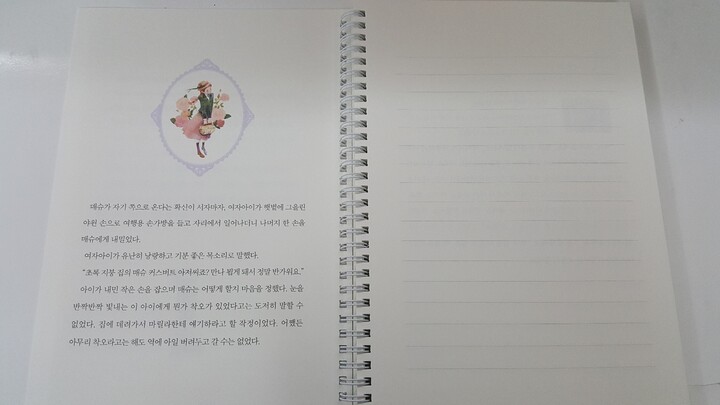 매슈가 자기 쪽으로 온다는 확신이 서자마자, 여자아이가 햇볕에 그을린
야윈 손으로 여행용 손가방을 들고 자리에서 일어나더니 나머지 한 손을
매슈에게 내밀었다.
여자아이가 유난히 낭랑하고 기분 좋은 목소리로 말했다.
"초록 지붕 집의 매슈 커스버트 아저씨죠? 만나 뵙게 돼서 정말 반가워요."
아이가 내민 작은 손을 잡으며 매슈는 어떻게 할지 마음을 정했다. 눈을
반짝반짝 빛내는 이 아이에게 뭔가 착오가 있었다고는 도저히 말할 수
없었다. 집에 데려가서 마릴라한테 얘기하라고 할 작정이었다. 어쨌든
아무리 착오라고는 해도 역에 아일 버려두고 갈 수는 없었다.